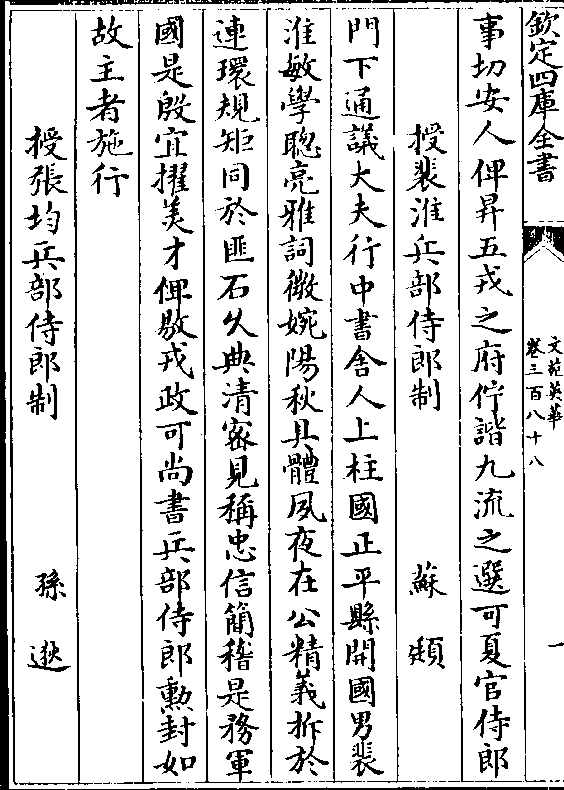 欽定四庫全書
文苑英華
卷三百八十八
一
事切安人俾昇五戎之府佇諧九流之選可夏官侍郎
授裴漼兵部侍郎制 蘇頲
門下通議大夫行中書舍人上柱國正平縣開國男裴
漼敏學聰亮雅詞微婉陽秋具體夙夜在公精義拆於
連環規矩同於匪石久典清宻見稱忠信簡稽是務軍
國是殷宜擢美才俾敭戎政可尚書兵部侍郎勲封如
故主者施行
授張均兵部侍郎制 孫逖